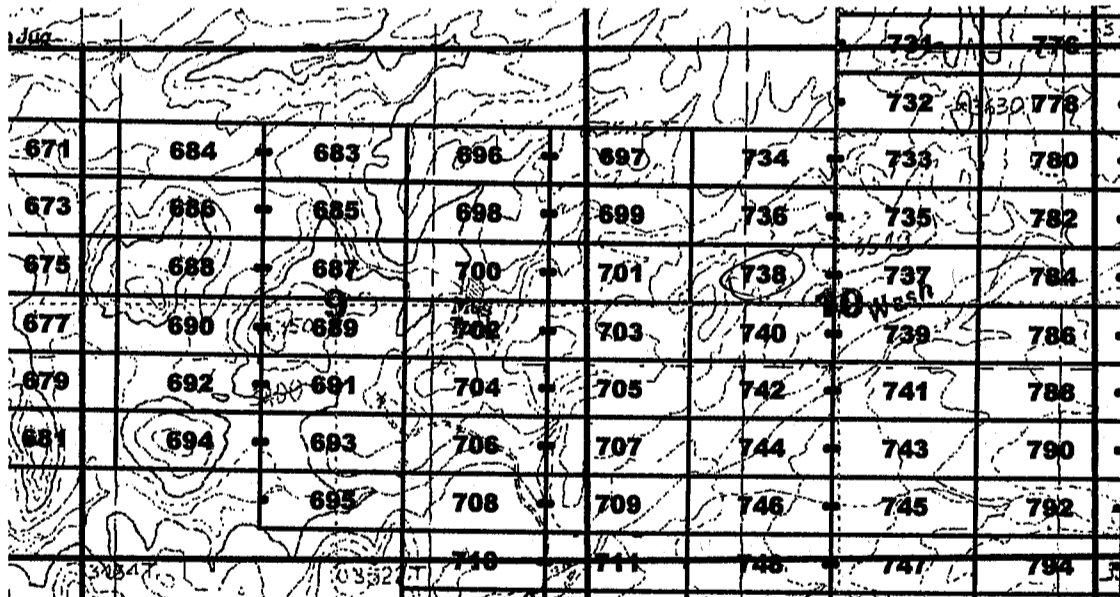 n Jug
731 776
732 3630 778
671 684 683 696 697 734 733 780
673 686 685 698 699 736 735 782
675 688 687 700 701 738 737 784
9 10 Wash
677 690 689 702 703 740 739 786
679 692 691 704 705 742 741 788
681 694 693 706 707 744 743 790
695 708 709 746 745 792
710 711 748 747 794